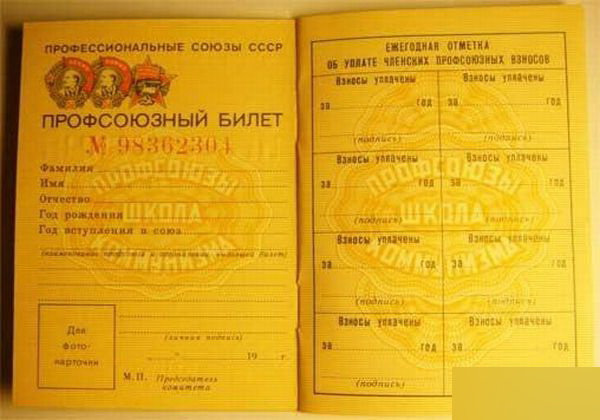 ПРОФЕССИОНАЛЬНЫЕ СОЮЗЫ СССР
ПРОФСОЮЗНЫЙ БИЛЕТ
№ 98362304
Фамилия
Имя
Отчество
Год рождения
Год вступления в союз
(наименование профсоюза и организации, выдавшей билет)
Для
фото-
карточки
(личная подпись)
19 г.
М.П. Председатель
комитета
ПРОФСОЮЗЫ
ШКОЛА
КОММУНИЗМА
ЕЖЕГОДНАЯ ОТМЕТКА
ОБ УПЛАТЕ ЧЛЕНСКИХ ПРОФСОЮЗНЫХ ВЗНОСОВ
Взносы уплачены Взносы уплачены
за год за год
(подпись) (подпись)
Взносы уплачены Взносы уплачены
за год за год
(подпись) (подпись)
Взносы уплачены Взносы уплачены
за год за год
(подпись) (подпись)
Взносы уплачены Взносы уплачены
за год за
(подпись)
ПРОФСОЮЗЫ
ШКОЛА